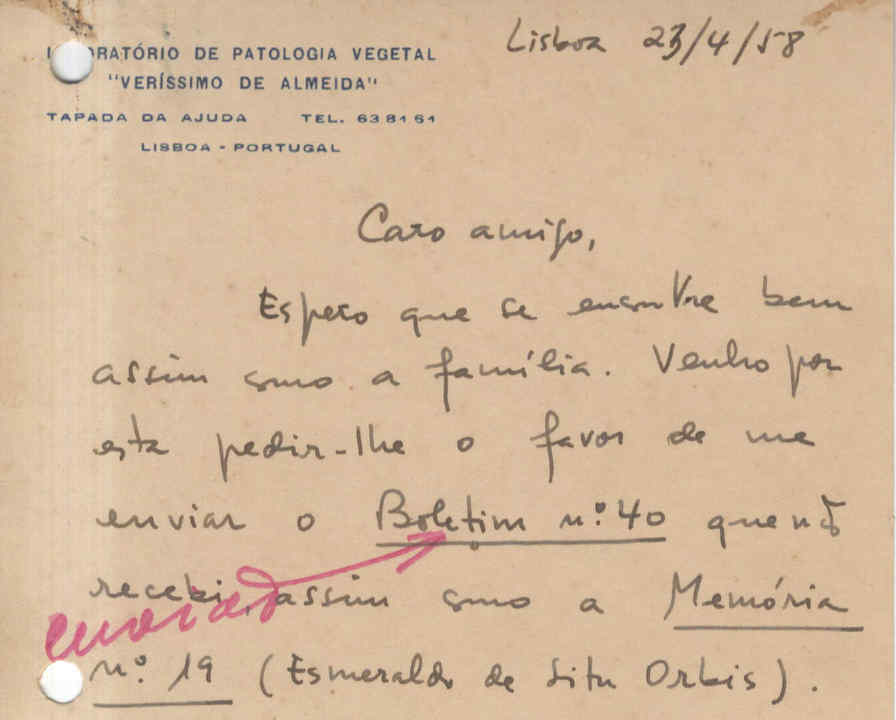 LABORATÓRIO DE PATOLOGIA VEGETAL
"VERÍSSIMO DE ALMEIDA"
TAPADA DA AJUDA TEL. 63 81 61
LISBOA - PORTUGAL
Lisboa 23/4/58
Caro amigo,
Espero que se encontre bem
assim como a família. Venho por
esta pedir-lhe o favor de me
enviar o Boletim nº 40 que não
recebi, assim como a Memória
enviado
nº 19 (Esmeraldo de Situ Orbis).